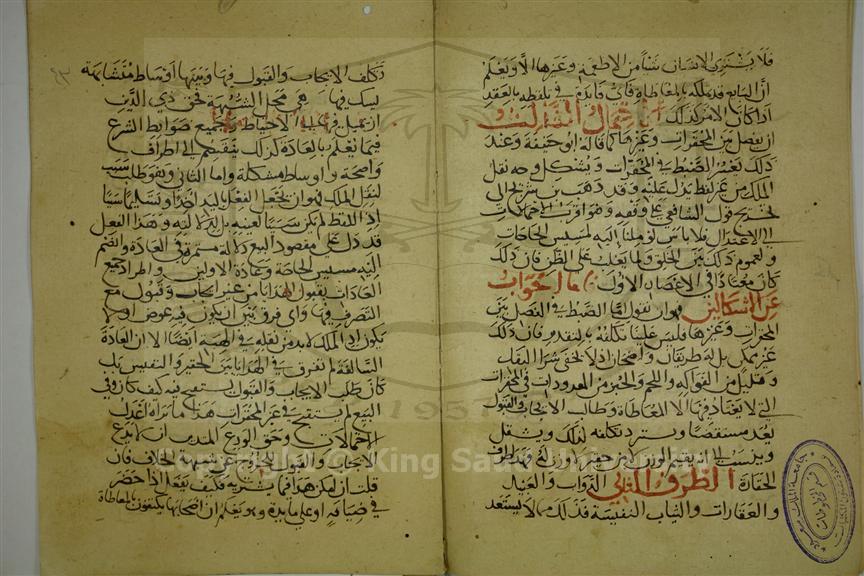 فلا يشتري الانسان شيأ من الاطعمة وغيرها الا ويعلم
ان البايع قد ملكه بالمعاطاة فاي فايدة في تلفظه بالعقد
اذا كان الامر كذلك الاحتمال الثالث
ان يفصل بين المحقرات وغيرها كما قاله ابو حنيفة وعند
ذلك يعسر الضبط في المحقرات ويشكل وجه نقل
الملك من غير لفظ يدل عليه وقد ذهب بن سريج الى
تخريج قول الشافعي على وفقه وهو اقرب الاحتمالات
الى الاعتدال فلا باس لو ملنا اليه لمسيس الحاجات
ولعموم ذلك بين الخلق ولما يغلب على الظن فان ذلك
كان معتادا في الاعصار الاول اما الجواب
عن الاشكالين فهو ان نقول اما الضبط في الفصل بين
المحقرات وغيرها فليس علينا تكلفه بالتقدير فان ذلك
غير ممكن بل له طرفان واضحان اذ لا يخفى شرا البقل
وقليل من الفواكه واللحم والخبز من المعدودات في المحقرات
التي لا يعتاد فيها الا المعاطاة وطالب الايجاب والقبول
يعد مستقصيا ويستبرد تكلفه لذلك ويثقل
وينسب الى انه يقيم الوزن لامر حقير ولا وزن له فهذا طرف
الحقارة الطرف الثاني الدواب والعبيد
والعقارات والثياب النفيسة فذلك مما لا يستبعد
تكلف الايجاب والقبول فيها وبينهما اوساط متشابهة
يشك فيها هي محل الشبهة فحق ذي الدين
ان يميل فيها الى الاحتياط وجميع ضوابط الشرع
فيما يعلم بالعادة كذلك ينقسم الى اطراف
واضحة واوساط مشكلة واما الثاني وهو طلب سبب
لنقل الملك فهو ان يجعل الفعل باليد اخذا وتسليما سببا
اذ اللفظ لم يكن سببا لعينه بل لدلالته وهذا الفعل
قد دل على مقصود البيع دلالة مستمرة في العادة وانضم
اليه مسيس الحاجة وعادة الاولين واطراد جميع
العادات بقبول الهدايا من غير ايجاب وقبول مع
التصرف فيها واي فرق بين ان يكون فيه عوض او لا
يكون اذ الملك لا بد من نقله في الهبة ايضا الا ان العادة
السالفة لم تفرق في الهدايا بين الحقير والنفيس بل
كان طلب الايجاب والقبول يستقبح فيه كيف كان وفي
البيع لم يستقبح في غير المحقرات هذا ما نراه اعدل
الاحتمالات وحق الورع المتدين ان لا يدع
الايجاب والقبول للخروج عن شبهة الخلاف فان
قلت ان امكن هذا فيما يشتريه فكيف يفعل اذا حضر
في ضيافة او على مايدة وهو يعلم ان اصحابها يكتفون بالمعاطاة
1957
Copyright © King Saud University